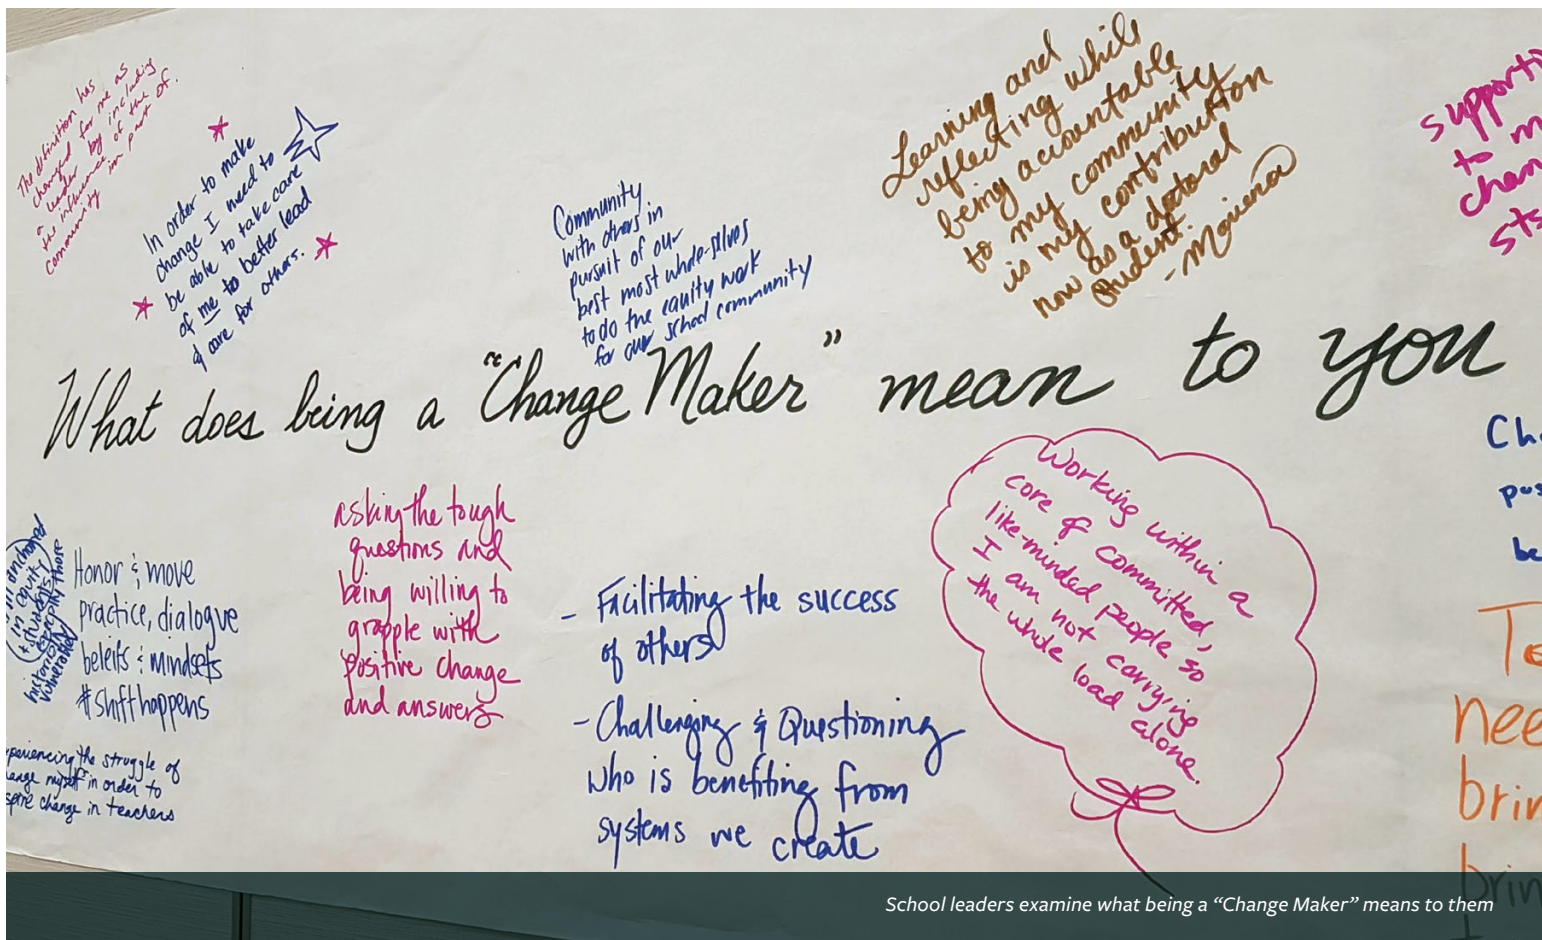 The definition has
changed for me as
a leader by including
the influence of the
community in part of.
In order to make
change I need to
be able to take care
of me to better lead
& care for others.
Community
with others in
pursuit of our
best most whole-selves
to do the equity work
for our school community
Learning and
reflecting while
being accountable
to my community
is my contribution
now as a doctoral
student.
supporti
to m
chan
sts
What does being a "Change Maker" mean to you
Honor & move
practice, dialogue
beleifs & mindsets
#shifthappens
anchored
in equity
+ students
those
historically
vulnerable
periencing the struggle of
ange myself in order to
spire change in teachers
asking the tough
questions and
being willing to
grapple with
positive change
and answers
- Facilitating the success
of others
- Challenging & Questioning
who is benefiting from
systems we create
Working within a
core of committed,
like-minded people so
I am not carrying
the whole load alone.
Ch
pos
be
To
nee
brin
brin
School leaders examine what being a “Change Maker” means to them